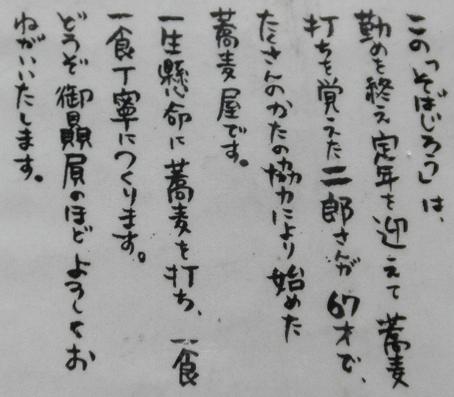 この「そばじろう」は、
勤めを終え定年を迎えて蕎麦
打ちを覚えた二郎さんが67才で、
たくさんのかたの協力により始めた
蕎麦屋です。
一生懸命に蕎麦を打ち、一食
一食丁寧につくります。
どうぞ御贔屓のほどよろしくお
ねがいいたします。